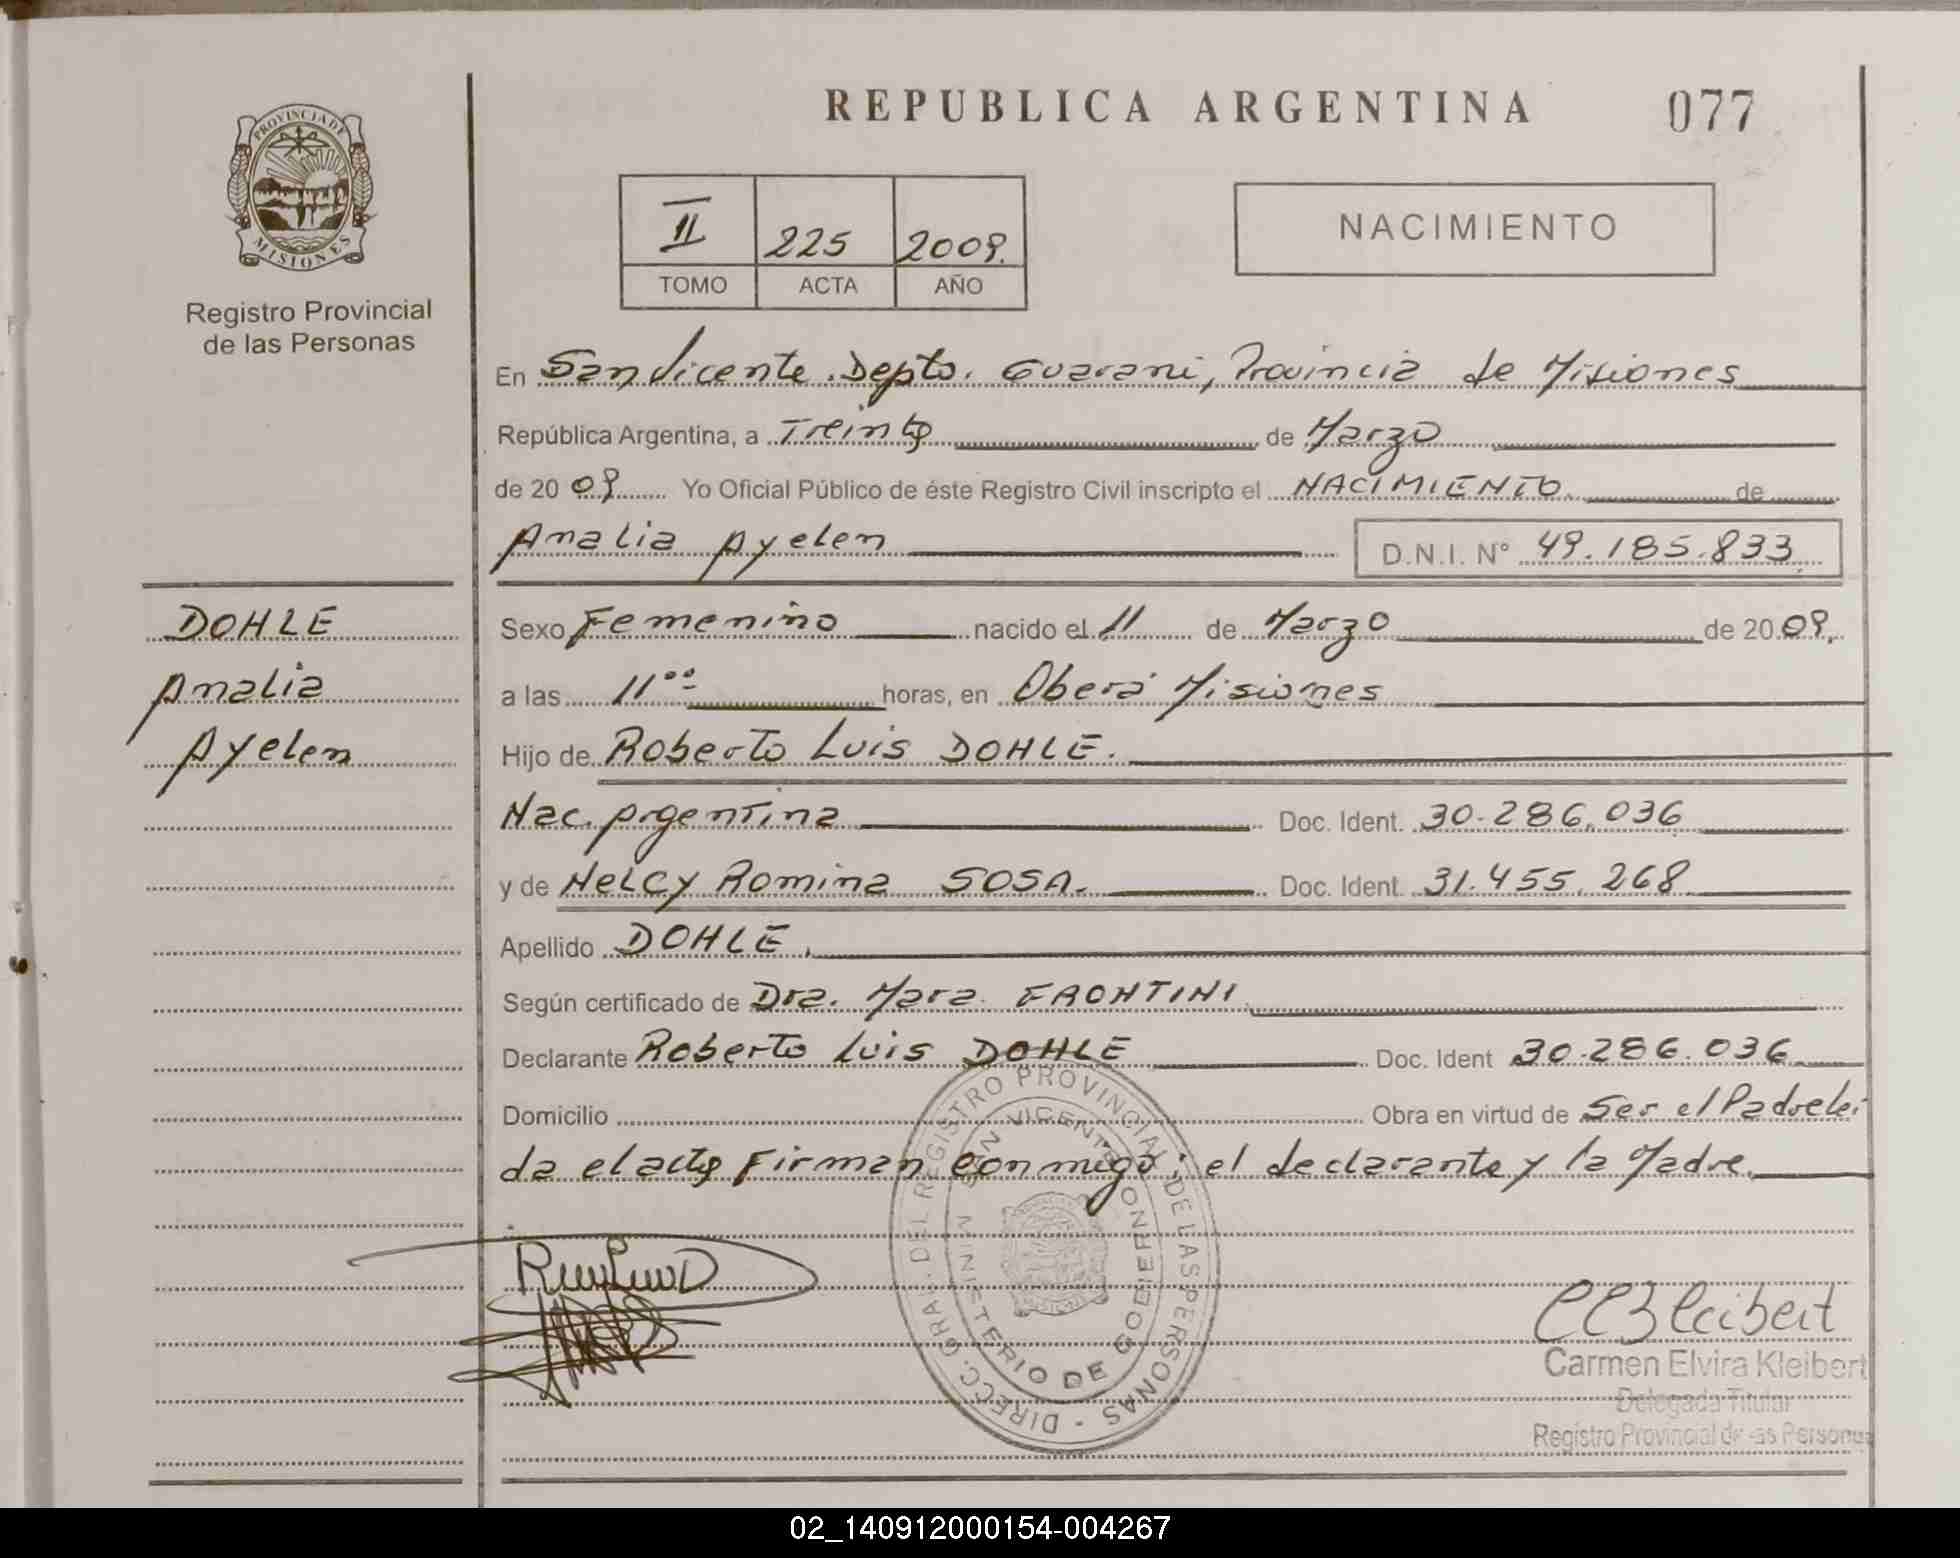 REPUBLICA ARGENTINA 077
PROVINCIA DE MISIONES
Registro Provincial
de las Personas
II 225 2009.
TOMO ACTA AÑO
NACIMIENTO
En San Vicente. Depto. Guarani, Provincia de Misiones
República Argentina, a Treinta de Marzo
de 20 09 Yo Oficial Público de éste Registro Civil inscripto el NACIMIENTO de
Amalia Ayelen D.N.I. N° 49.185.833
DOHLE
Amalia
Ayelen
Sexo Femenino nacido el 11 de Marzo de 20 09.
a las 11°° horas, en Oberá Misiones
Hijo de Roberto Luis DOHLE.
Nac. Argentina Doc. Ident. 30.286.036
y de Nelcy Romina SOSA. Doc. Ident. 31.455.268
Apellido DOHLE.
Según certificado de Dra. Mara FRONTINI
Declarante Roberto Luis DOHLE Doc. Ident 30.286.036
Domicilio Obra en virtud de Ser el Padre lei
da el acta Firman conmigo: el declarante y la Madre.
DIRECC. GRAL. DEL REGISTRO PROVINCIAL DE LAS PERSONAS
SAN VICENTE
MINISTERIO DE GOBIERNO
CEKleibert
Carmen Elvira Kleibert
Delegada Titular
Registro Provincial de las Personas
02_140912000154-004267